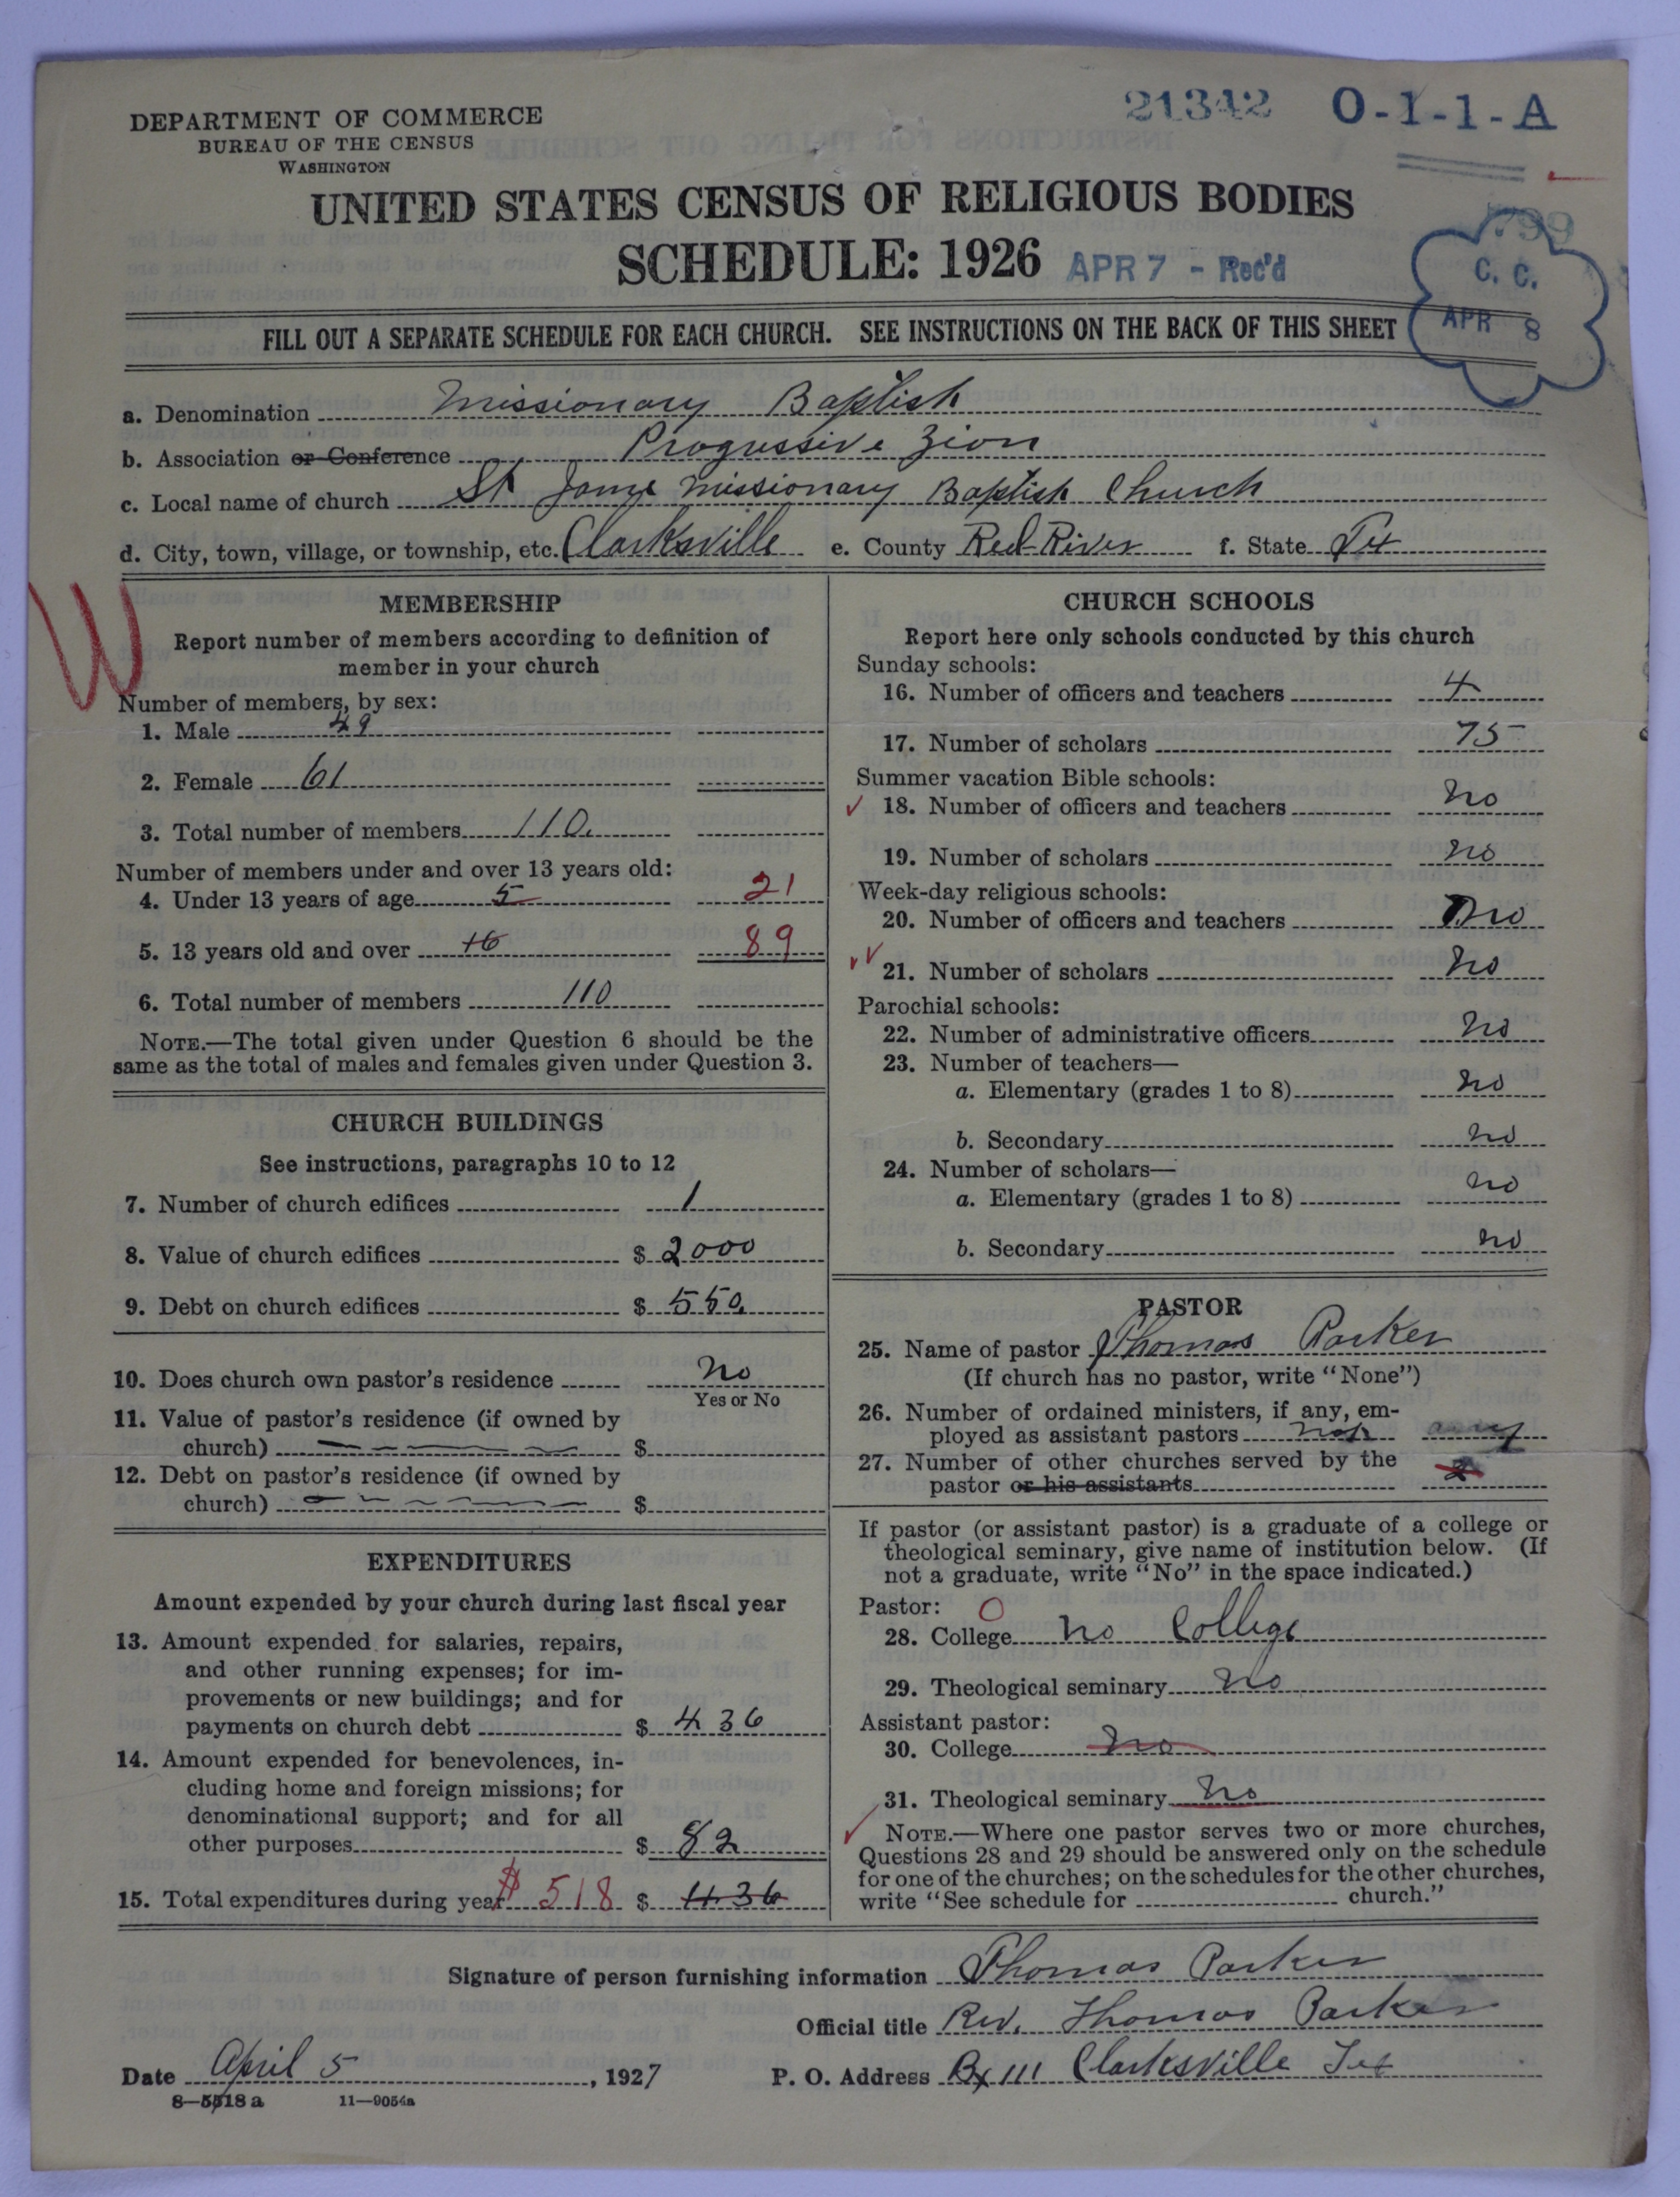 21342 O-1-1-A
DEPARTMENT OF COMMERCE
BUREAU OF THE CENSUS
WASHINGTON
UNITED STATES CENSUS OF RELIGIOUS BODIES
SCHEDULE: 1926 APR 7 - Rec'd
C. C.
APR 8
FILL OUT A SEPARATE SCHEDULE FOR EACH CHURCH. SEE INSTRUCTIONS ON THE BACK OF THIS SHEET
a. Denomination Missionary Baptish
b. Association or Conference Progressive Zion
c. Local name of church St Jame Missionary Baptish Church
d. City, town, village, or township, etc. Clarksville e. County Red River f. State Tex
W
MEMBERSHIP
Report number of members according to definition of
member in your church
Number of members, by sex:
1. Male 49
2. Female 61
3. Total number of members 110.
Number of members under and over 13 years old:
4. Under 13 years of age 5 21
5. 13 years old and over 16 89
6. Total number of members 110
NOTE.—The total given under Question 6 should be the
same as the total of males and females given under Question 3.
CHURCH BUILDINGS
See instructions, paragraphs 10 to 12
7. Number of church edifices 1
8. Value of church edifices $ 2000
9. Debt on church edifices $ 550
10. Does church own pastor's residence no
Yes or No
11. Value of pastor's residence (if owned by
church) $
12. Debt on pastor's residence (if owned by
church) $
EXPENDITURES
Amount expended by your church during last fiscal year
13. Amount expended for salaries, repairs,
and other running expenses; for im-
provements or new buildings; and for
payments on church debt $ 436
14. Amount expended for benevolences, in-
cluding home and foreign missions; for
denominational support; and for all
other purposes $ 82
15. Total expenditures during year $ 518 $ 436
CHURCH SCHOOLS
Report here only schools conducted by this church
Sunday schools:
16. Number of officers and teachers 4
17. Number of scholars 75
Summer vacation Bible schools:
18. Number of officers and teachers no
19. Number of scholars no
Week-day religious schools:
20. Number of officers and teachers no
21. Number of scholars no
Parochial schools:
22. Number of administrative officers no
23. Number of teachers—
a. Elementary (grades 1 to 8) no
b. Secondary no
24. Number of scholars—
a. Elementary (grades 1 to 8) no
b. Secondary no
PASTOR
25. Name of pastor Thomas Parker
(If church has no pastor, write "None")
26. Number of ordained ministers, if any, em-
ployed as assistant pastors not any
27. Number of other churches served by the
pastor or his assistants 2
If pastor (or assistant pastor) is a graduate of a college or
theological seminary, give name of institution below. (If
not a graduate, write "No" in the space indicated.)
Pastor: O
28. College no College
29. Theological seminary no
Assistant pastor:
30. College no
31. Theological seminary no
NOTE.—Where one pastor serves two or more churches,
Questions 28 and 29 should be answered only on the schedule
for one of the churches; on the schedules for the other churches,
write "See schedule for church."
Signature of person furnishing information Thomas Parker
Official title Rev. Thomas Parker
Date April 5, 1927 P. O. Address Bx 111 Clarksville Tex
8—5518 a 11—9054a